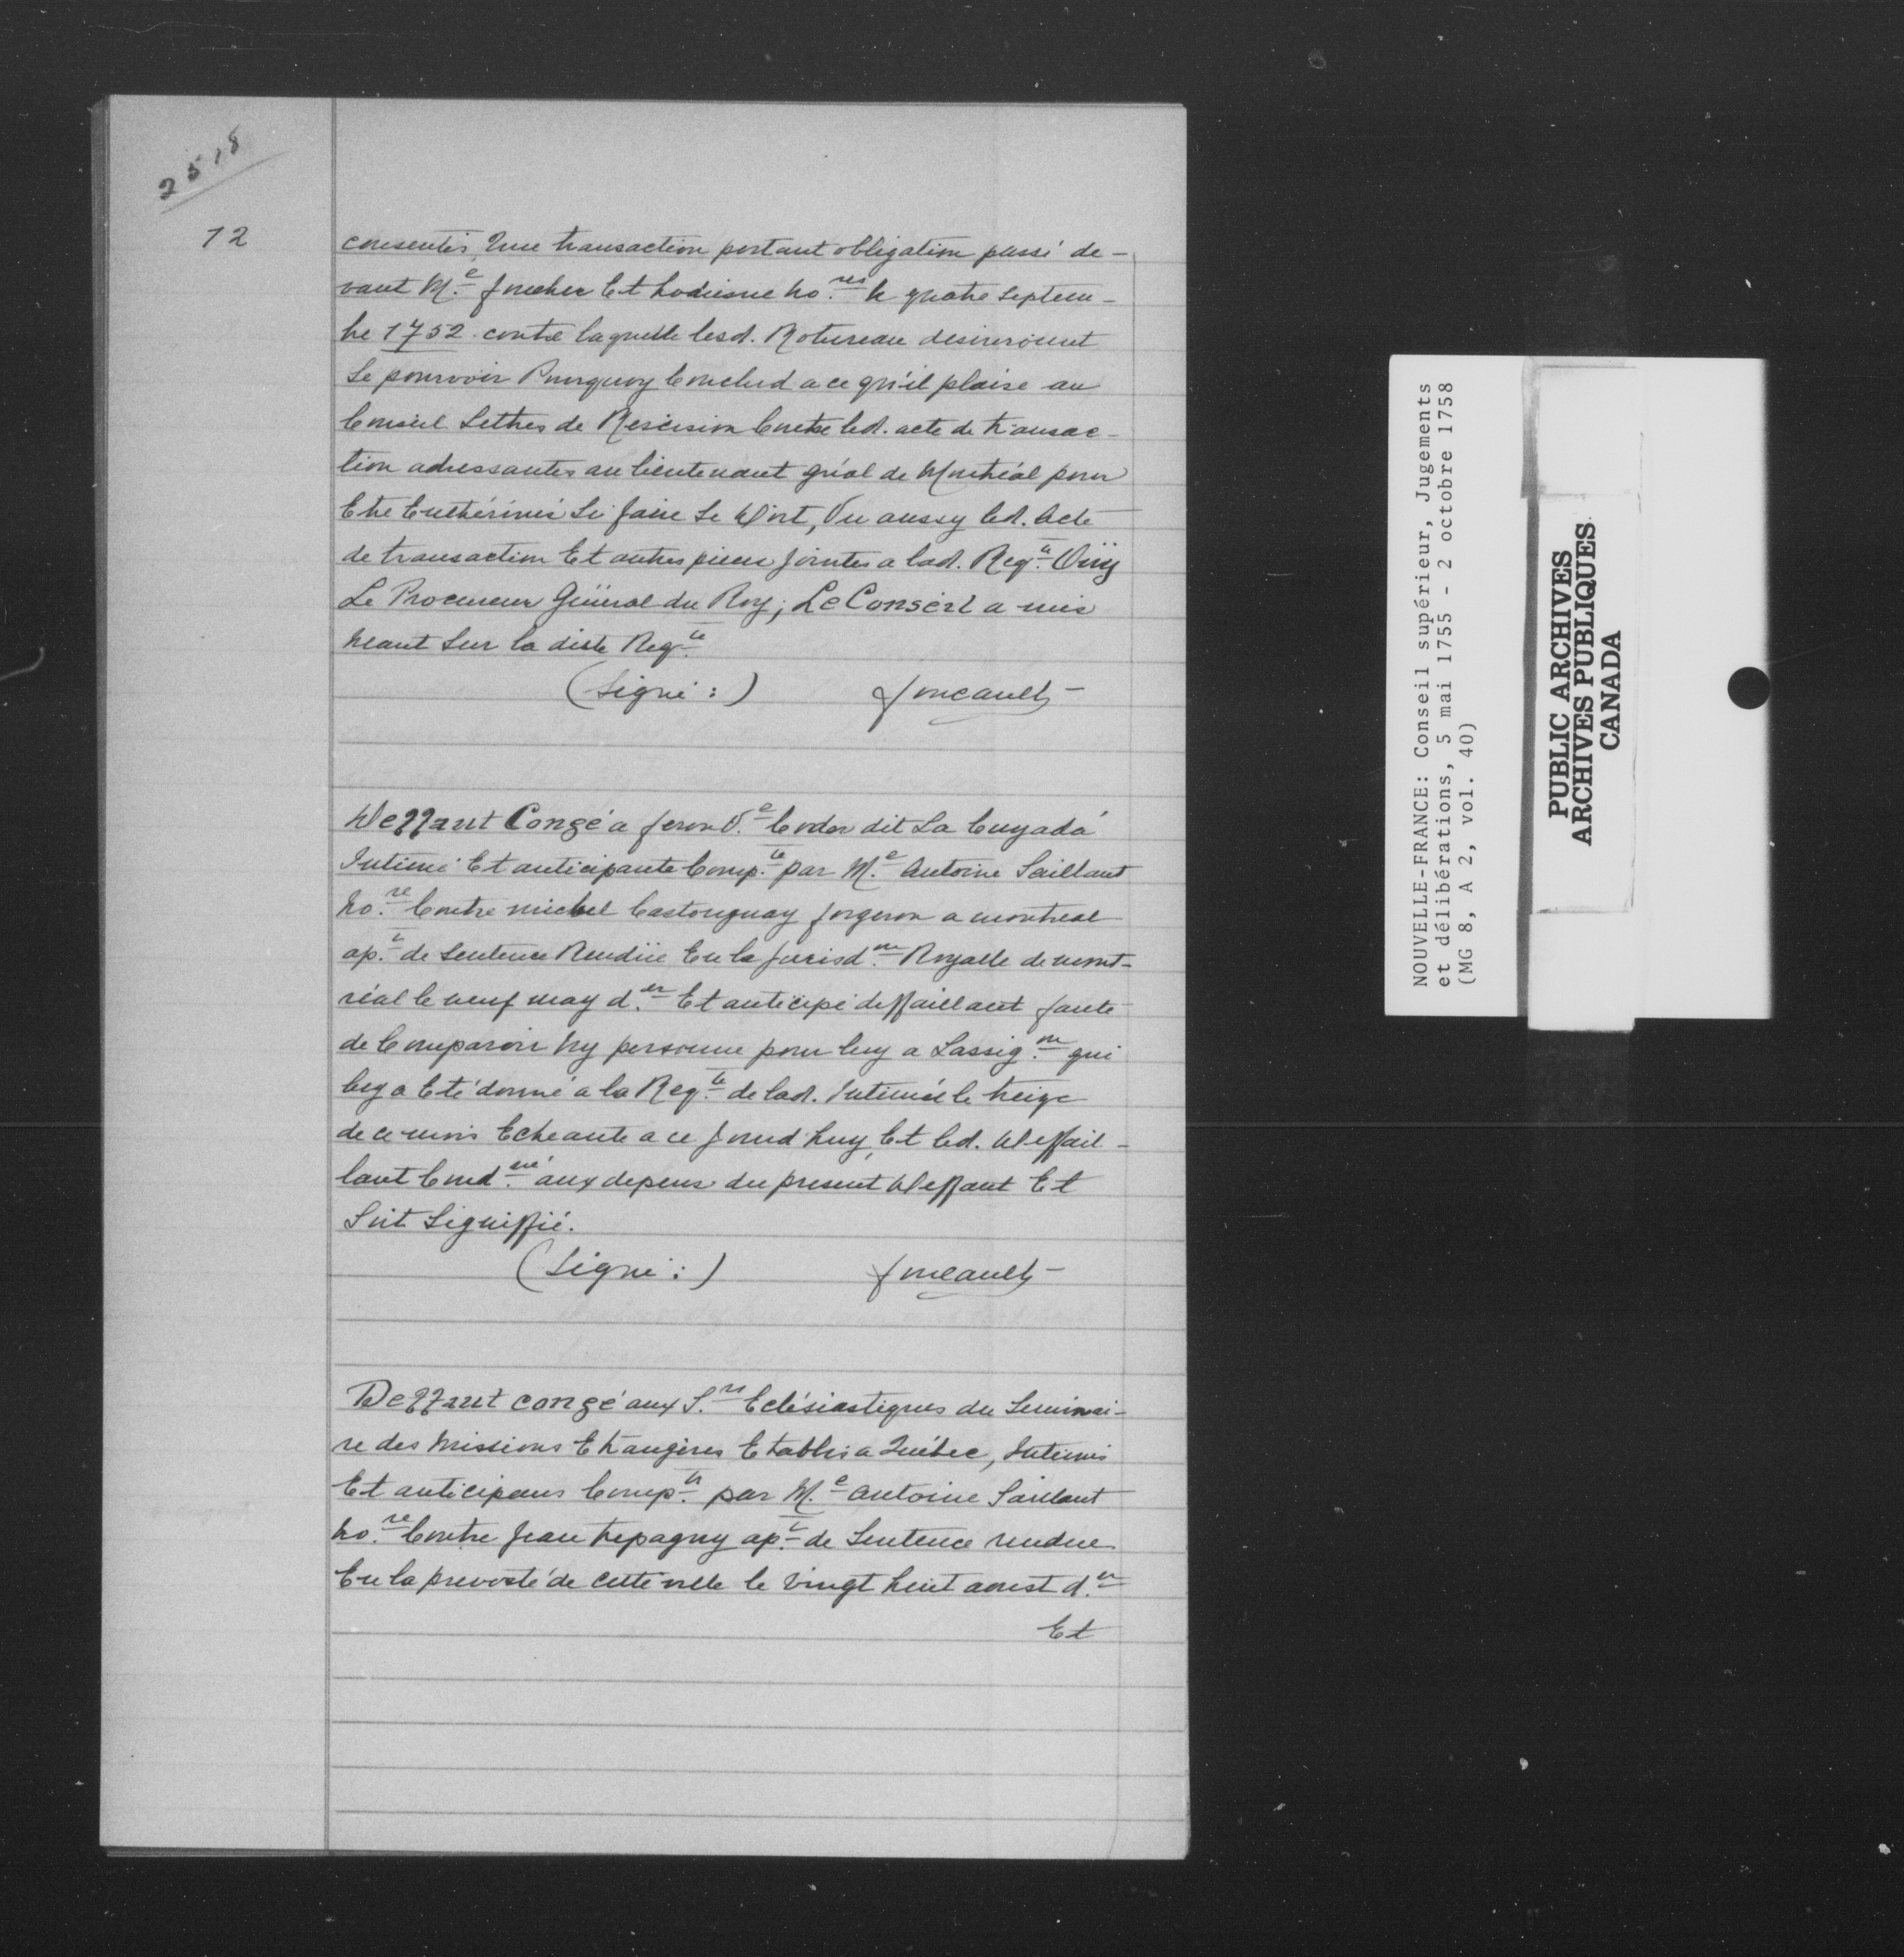 2518
12
consentir, Une transaction portant obligation passé de-
vant M.e foucher Et hodiesne no.res le quatre Septem-
bre 1752. contre laquelle lesd. Rotureau desireroient
Se pourvoir Pourquoy Conclud a ce qu'il plaise au
Conseil Lettres de Rescision Contre led. acte de transac-
tion adressantes au lieutenant gñal de Montréal pour
Etre Enthérinés Si faire Se doit, Vu aussy led. Acte
de transaction Et autres pieces jointes a lad. Reqte. Oüy
Le Procureur Général du Roy; Le Conseil a mis
neant Sur la ditte Reqte.
(Signé:) foucault
Deffaut Congé a V.e dit La
Intimé Et anticipante Comp.te par M.e Antoine Saillant
no.re Contre michel Castonguay forgeron a montreal
ap.t de Sentence Rendüe En la jurisd.on Royalle de mont-
réal le neuf may d.er Et anticipé deffaillant faute
de Comparoir Ny personne pour luy a Lassig.on qui
luy a Eté donné a la Req.te de lad. Intimée le treize
de ce mois Echeante a ce jourd'huy, Et led. deffail-
lant Cond.né aux depens du présent deffaut Et
Soit Signiffié.
(Signé:) foucault
Deffaut congé aux S.rs Eclésiastiques du Seminai-
re des Missions Etrangères Etablis a Québec, Intimés
Et anticipans Comp.ts par M.e Antoine Saillant
no.re Contre Jean trepagny ap.t de Sentence rendue
En la prevosté de cette ville le Vingt huit aoust d.er
Et
NOUVELLE-FRANCE: Conseil supérieur, Jugements
et délibérations, 5 mai 1755 - 2 octobre 1758
(MG 8, A 2, vol. 40)
PUBLIC ARCHIVES
ARCHIVES PUBLIQUES
CANADA